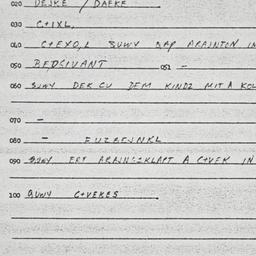 020 DEJKE / DAFKE
030 C+IXL,
040 C+EYO,L BUWY BAP ARAINTON IN
050 BEDSIVANT 051 –
060 BUWY DER CU DEM KIND2 MIT A KOL
070 –
080 – FUZBEJNKL
090 BUWY ERT A C+VEK IN
100 BUWY C+VEKES